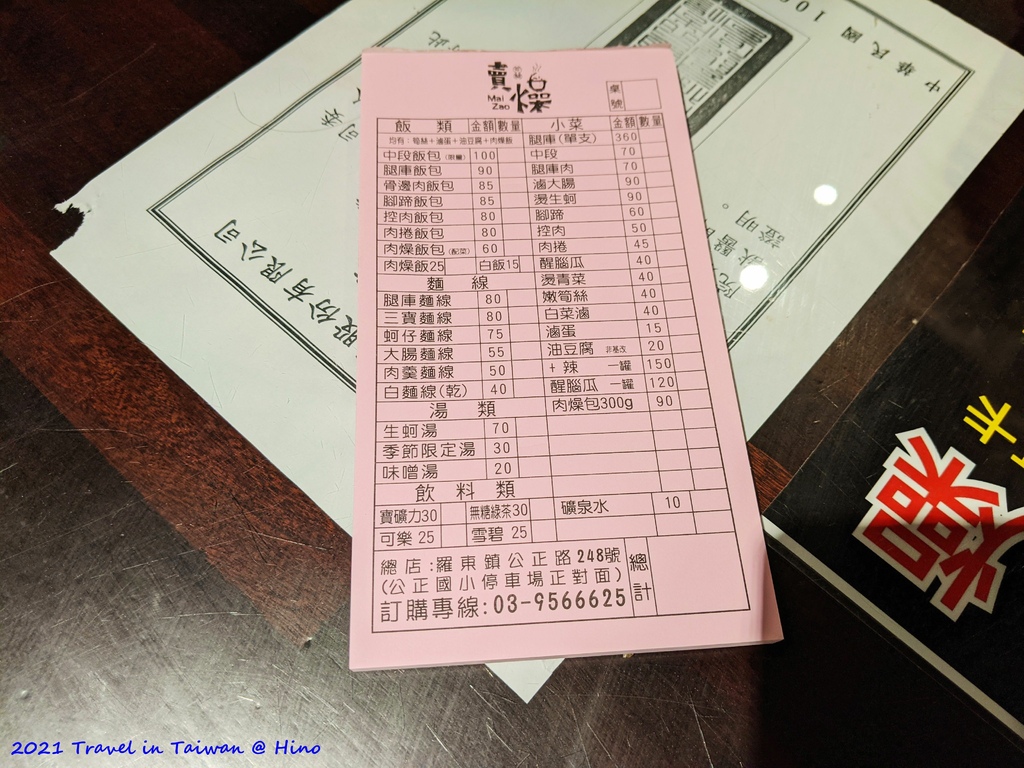 中華民國 10
賣燥
Mai Zao
桌號
飯類 金額 數量 小菜 金額 數量
均有:筍絲+滷蛋+油豆腐+肉燥飯 腿庫(單支) 360
中段飯包(限量) 100 中段 70
腿庫飯包 90 腿庫肉 70
骨邊肉飯包 85 滷大腸 90
腳蹄飯包 85 燙生蚵 90
控肉飯包 80 腳蹄 60
肉捲飯包 80 控肉 50
肉燥飯包(配菜) 60 肉捲 45
肉燥飯25 白飯15 醒腦瓜 40
麵線 燙青菜 40
腿庫麵線 80 嫩筍絲 40
三寶麵線 80 白菜滷 40
蚵仔麵線 75 滷蛋 15
大腸麵線 55 油豆腐 非基改 20
肉羹麵線 50 +辣 一罐 150
白麵線(乾) 40 醒腦瓜 一罐 120
湯類 肉燥包300g 90
生蚵湯 70
季節限定湯 30
味噌湯 20
飲料類
寶礦力30 無糖綠茶30 礦泉水 10
可樂 25 雪碧 25
總店:羅東鎮公正路248號
(公正國小停車場正對面)
訂購專線:03-9566625
總計
股份有限公司
證明。
燥
2021 Travel in Taiwan @ Hino